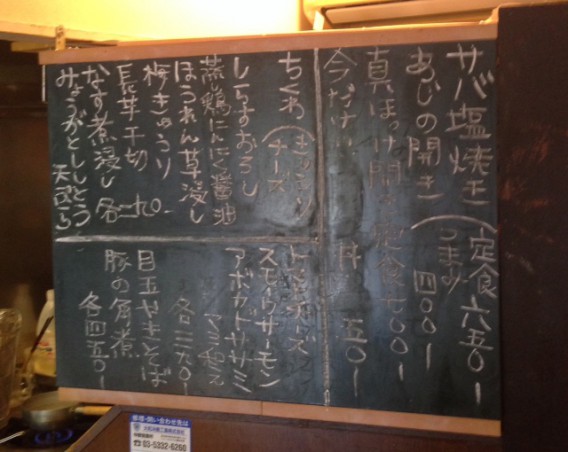 サバ塩焼き(定食六五〇ー
あじの開き(つまみ 四〇〇ー
真ほっけ開き定食七〇〇ー
今だけ!! 丼 五〇ー
ちくわ(きゅうり
チーズ
しらすおろし
蒸し鶏にんにく醤油
ほうれん草浸し
梅きゅうり
長芋千切
なす煮浸し 各
みょうがとししとう天ぷら
スモークサーモン
アボカドササミ
マヨ和え
各三五〇ー
目玉やきそば
豚の角煮
各四五〇ー
03-5332-6260